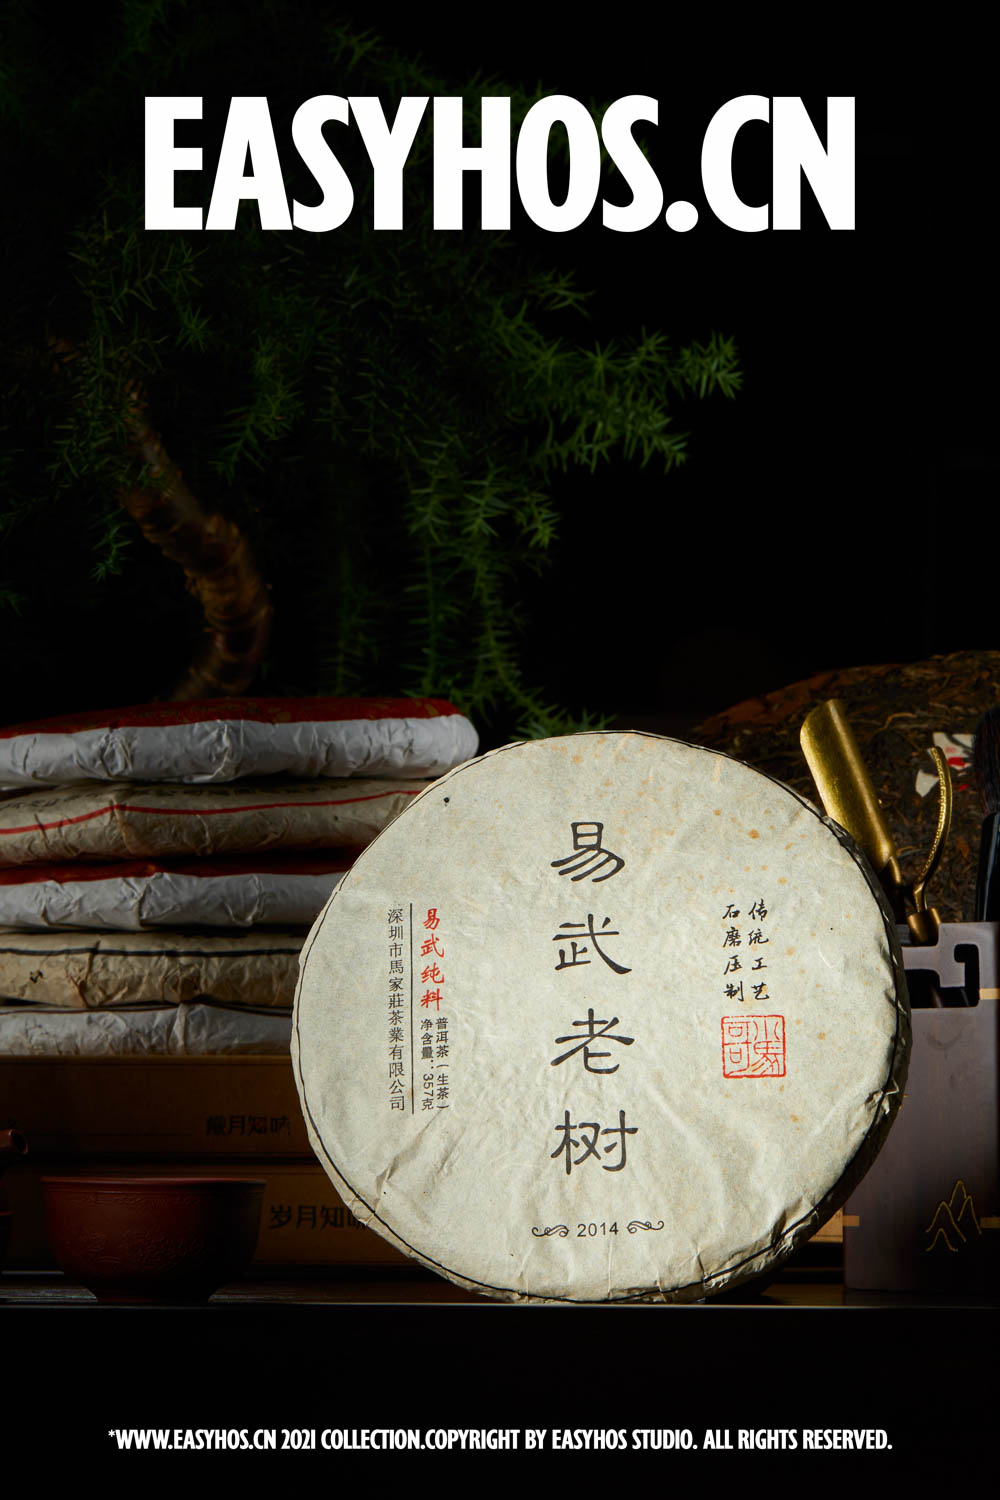 EASYHOS.CN
易武老树
传统工艺
石磨压制
易武纯料
普洱茶（生茶）
净含量：357克
深圳市馬家莊茶業有限公司
2014
岁月知味
*WWW.EASYHOS.CN 2021 COLLECTION.COPYRIGHT BY EASYHOS STUDIO. ALL RIGHTS RESERVED.